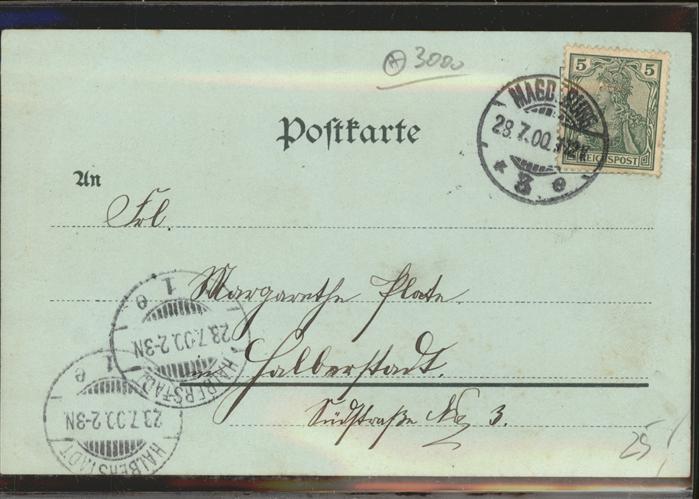 3000
5 5
REICHSPOST
MAGDEBURG
28.7.00.
* 3 e
Postkarte
An
Frl.
Margarethe Plate.
in Halberstadt.
Südstraße No 3.
HALBERSTADT
28.7.00.2-3N
1 e
HALBERSTADT
23.7.00.2-3N
1 e
25